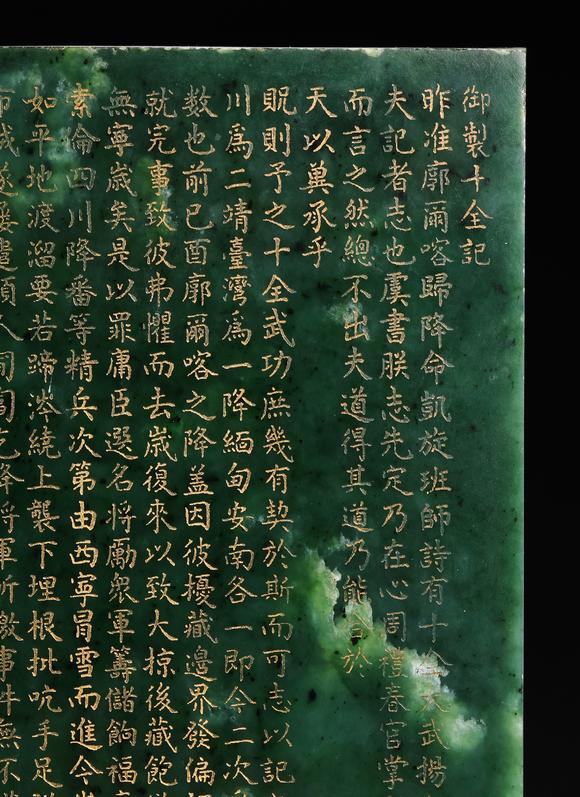 御製十全記
昨准廓爾喀歸降命凱旋班師詩有十全大武揚
夫記者志也虞書朕志先定乃在心周禮春官掌
而言之然總不出夫道得其道乃能合於
天以冀承乎
貺則予之十全武功庶幾有契於斯而可志以記
川爲二靖臺灣爲一降緬甸安南各一即今二次
数也前己酉廓爾喀之降盖因彼擾藏邊界發偏
就完事致彼弗懼而去歲復來以致大掠後藏飽
無寧歲矣是以罪庸臣選名將勵衆軍籌儲餉福
索倫四川降番等精兵次第由西寧冒雪而進今
如平地渡溜要若蹄涔繞上襲下埋根批吭手足
遂屢遣頭人匍匐乞降將軍所檄事件無不